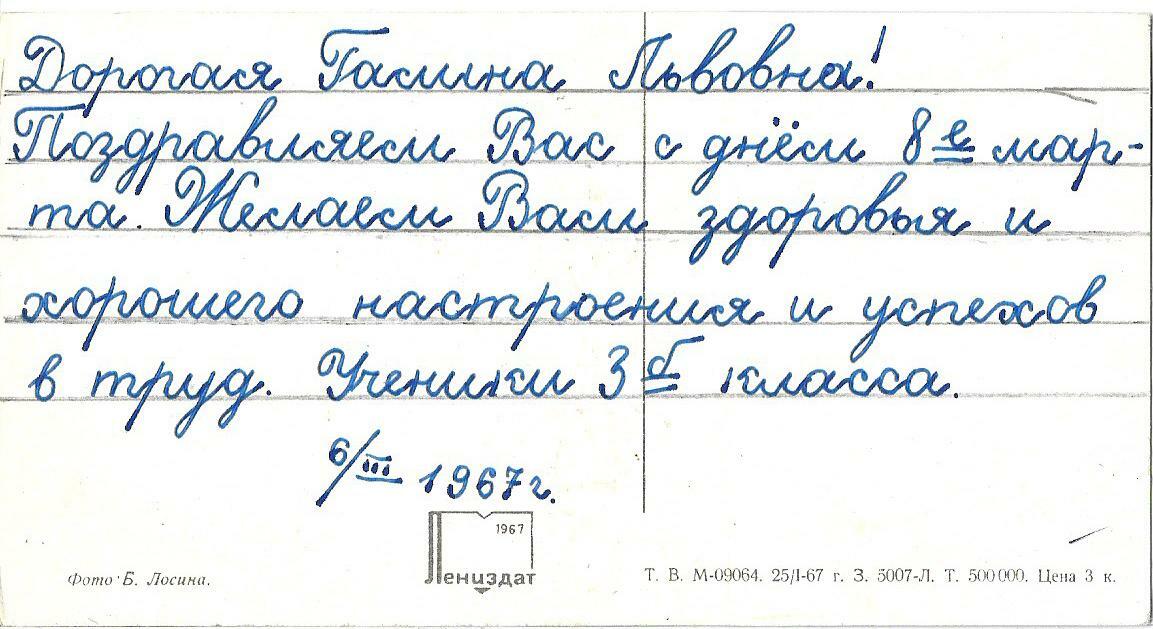 Дорогая Галина Львовна!
Поздравляем Вас с днём 8е мар-
та. Желаем Вам здоровья и
хорошего настроения и успехов
в труд. Ученики 3б класса.
6/III 1967г.
1967
Лениздат
Фото Б. Лосина.
Т. В. М-09064. 25/I-67 г. З. 5007-Л. Т. 500000. Цена 3 к.